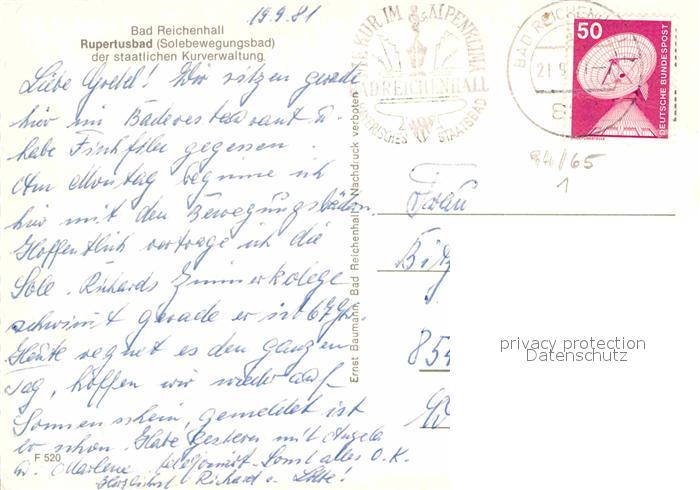 19.9.81
Bad Reichenhall
Rupertusbad (Solebewegungsbad)
der staatlichen Kurverwaltung
Liebe Gretel! Wir sitzen gerade
hier im Baderestaurant u.
habe Fischfilet gegessen.
Am Montag beginne ich
hier mit den Bewegungsbädern.
Hoffentlich vertrage ich die
Sole. Richards Zimmerkollege
schwimmt gerade er ist 67 J.
Heute regnet es den ganzen
Tag, hoffen wir wieder auf
Sonnenschein, gemeldet ist
er schon. Habe gestern mit Angela
u. Marlene telefoniert. Sonst alles O.K.
Herzlichst Richard u.
F 520
Ernst Baumann, Bad Reichenhall Nachdruck verboten
KUR IM ALPENKLIMA
BAD REICHENHALL
BAYERISCHES STAATSBAD
BAD REICHENHALL
21.9.
50
DEUTSCHE BUNDESPOST
84/65
1
Frau
854
privacy protection
Datenschutz